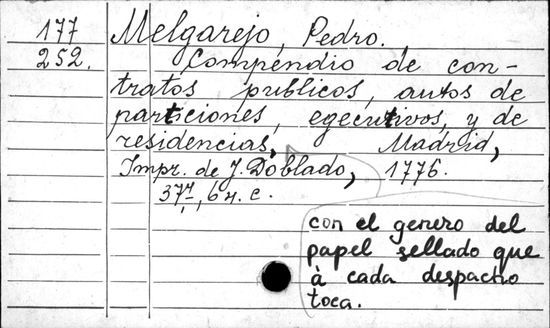 177 Melgarejo, Pedro.
252. Compendio de con-
tratos publicos, autos de
particiones, egecutivos, y de
residencias, Madrid,
Impr. de J. Doblado, 1776.
con el genero del
papel sellado que
à cada despacho
toca.